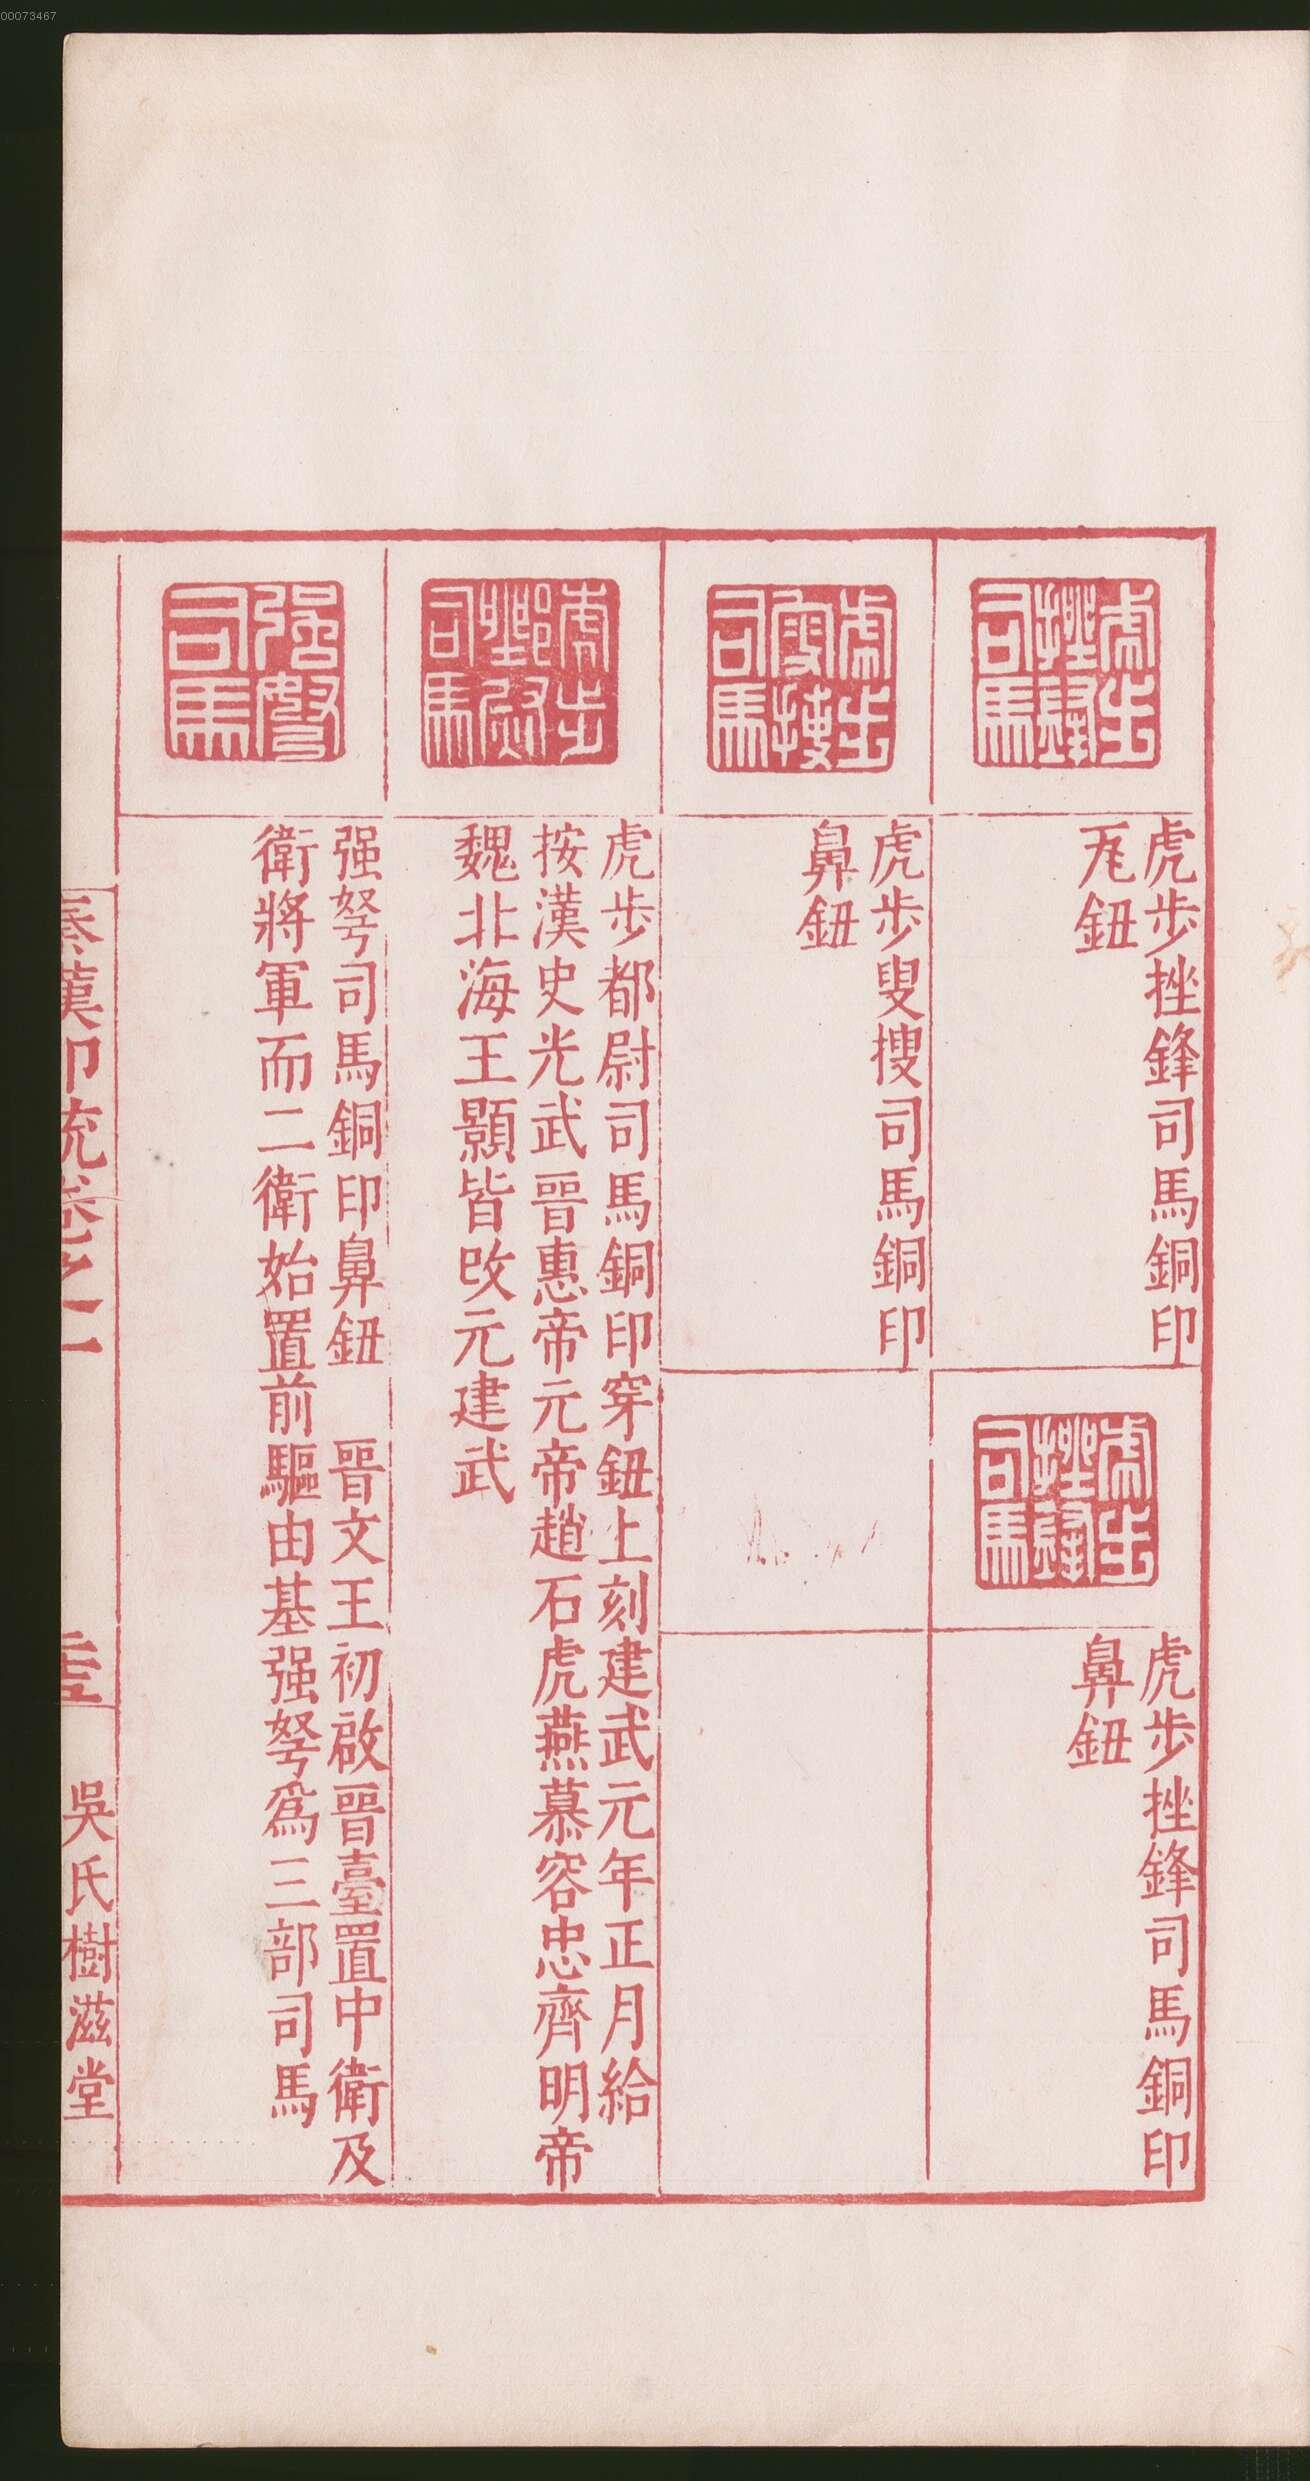 00073467
虎步
挫鋒
司馬
虎步挫鋒司馬銅印
瓦鈕
虎步
挫鋒
司馬
虎步挫鋒司馬銅印
鼻鈕
虎步
叟搜
司馬
虎步叟搜司馬銅印
鼻鈕
虎步
都尉
司馬
虎步都尉司馬銅印穿鈕上刻建武元年正月給
按漢史光武晉惠帝元帝趙石虎燕慕容忠齊明帝
魏北海王顥皆改元建武
强弩
司馬
强弩司馬銅印鼻鈕 晉文王初啟晉臺置中衛及
衛將軍而二衛始置前驅由基强弩爲三部司馬
秦漢印統卷之一
吳氏樹滋堂